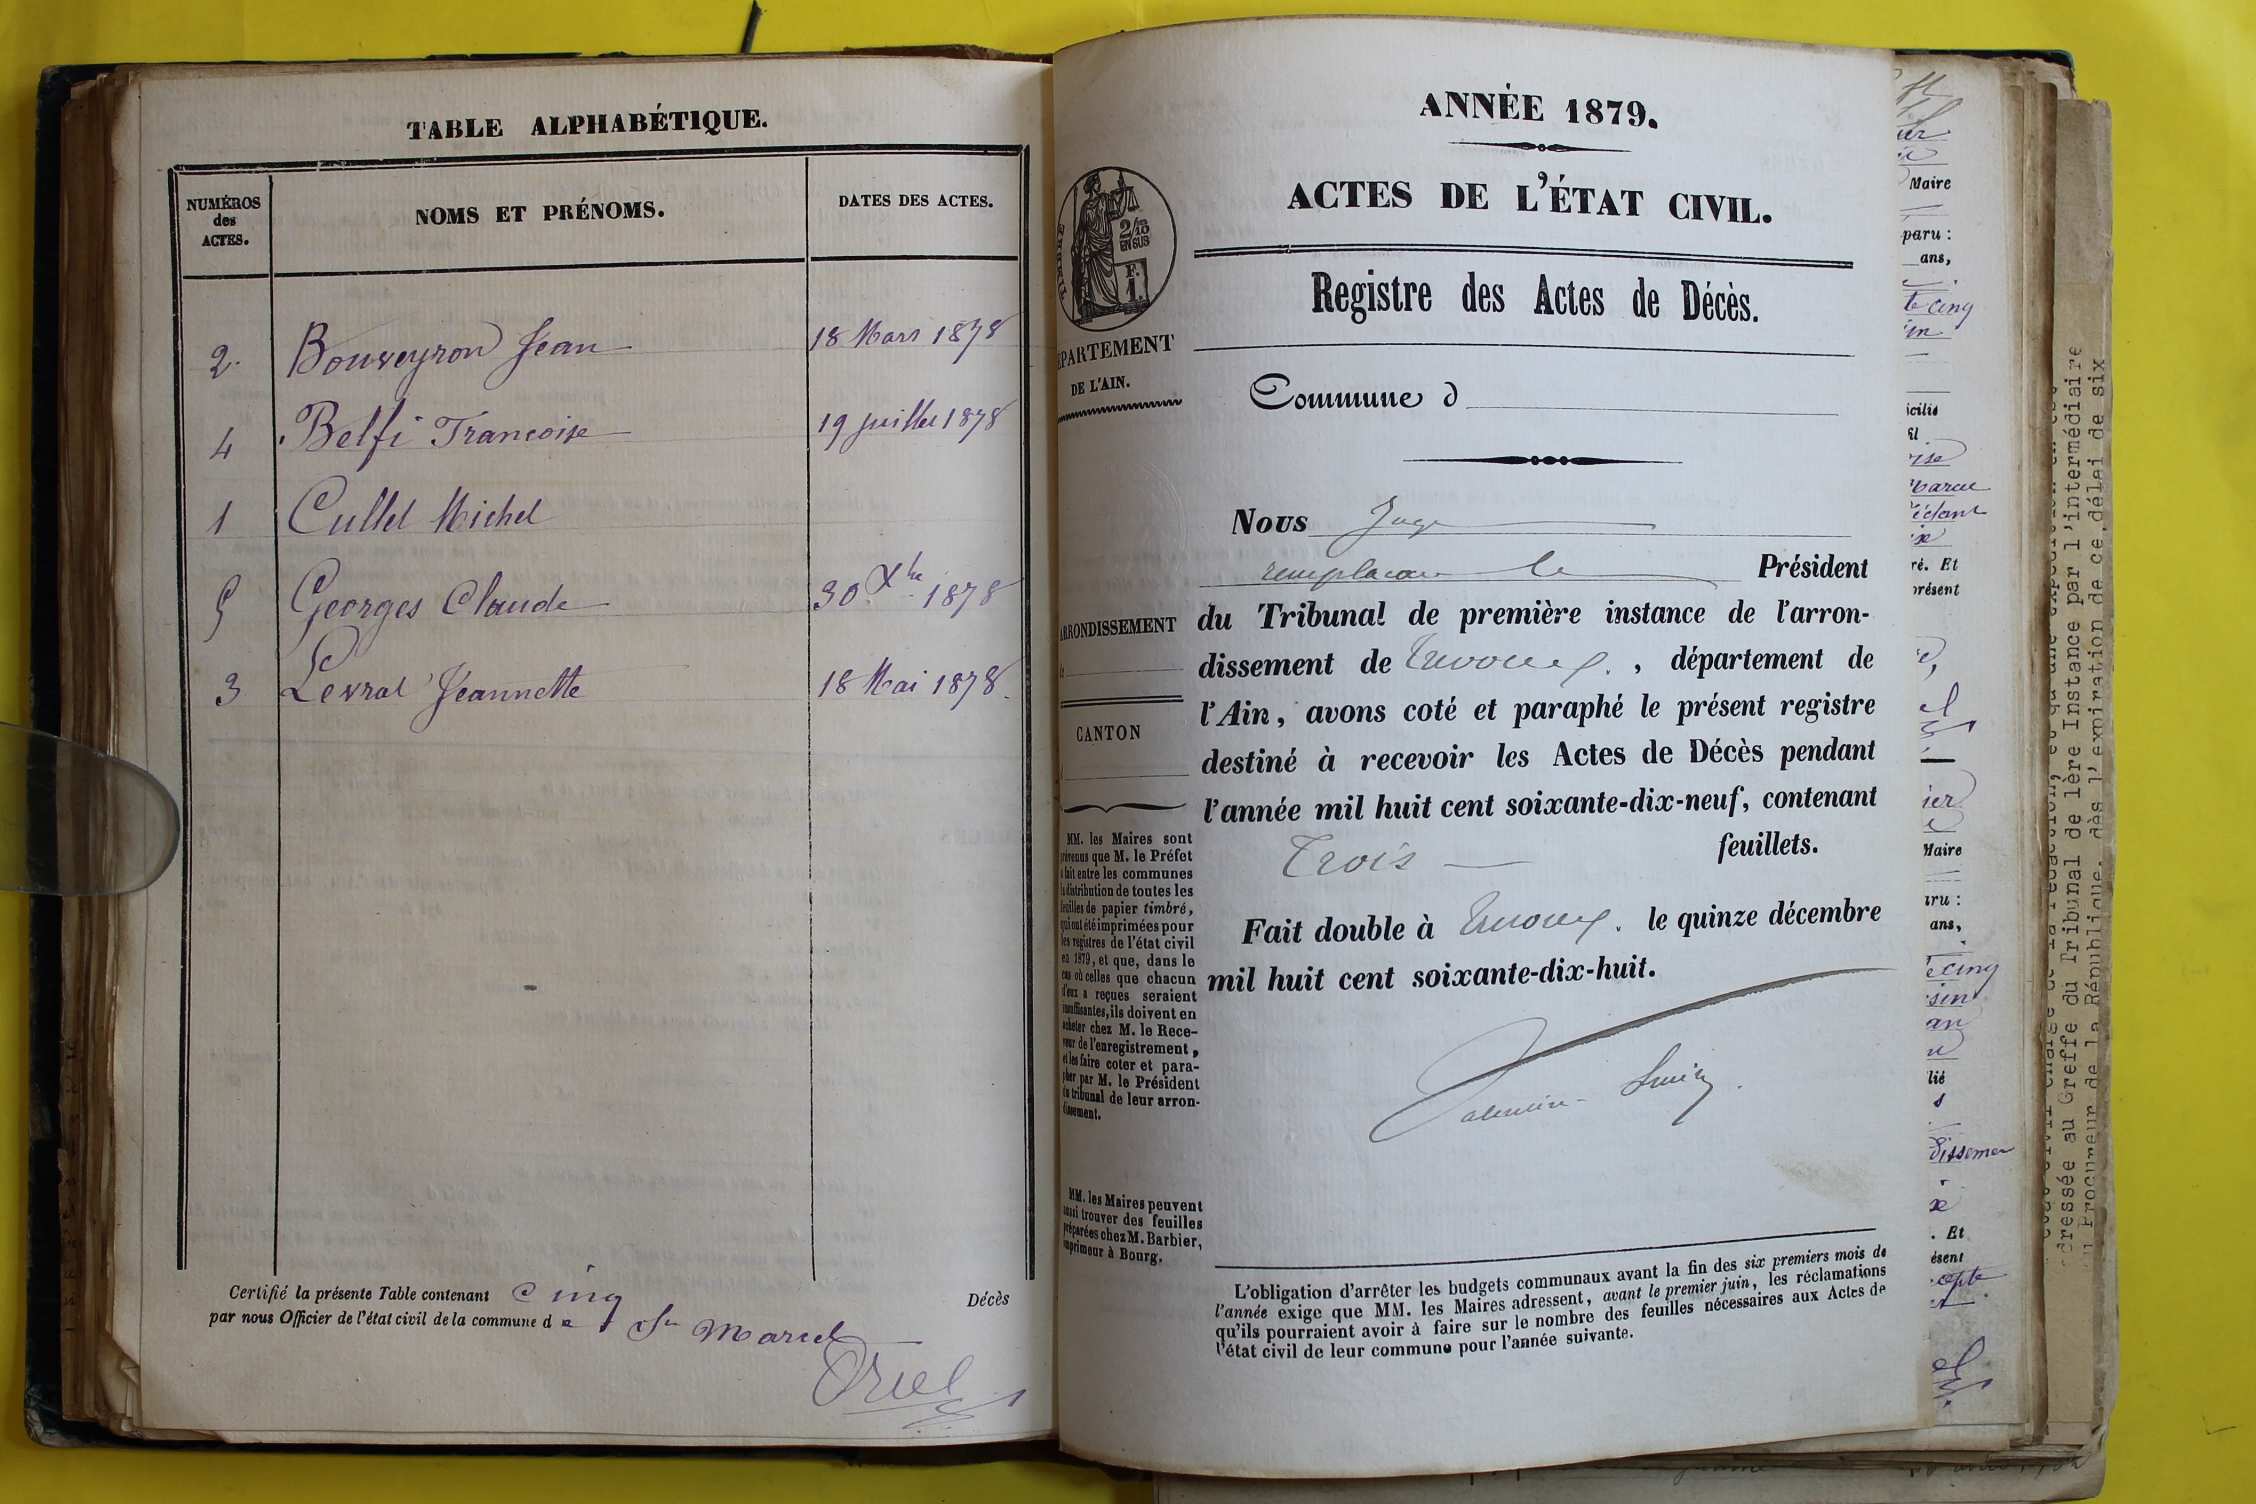 TABLE ALPHABÉTIQUE.
NUMÉROS
des
ACTES.
NOMS ET PRÉNOMS.
DATES DES ACTES.
2. Bouveyron Jean 18 Mars 1878
4 Belfi Francoise 19 juillet 1878
1 Cullet Michel
5 Georges Claude 30 Xbre 1878
3 Levrat Jeannette 18 Mai 1878.
Certifié la présente Table contenant cinq Décès
par nous Officier de l'état civil de la commune de St Marcel
ANNÉE 1879.
ACTES DE L'ÉTAT CIVIL.
Registre des Actes de Décès.
TIMBRE
2/10
EN SUS
F.
1.
DÉPARTEMENT
DE L'AIN.
Commune d
Nous Juge
remplacant le Président
du Tribunal de première instance de l'arron-
dissement de Trévoux, département de
l'Ain, avons coté et paraphé le présent registre
destiné à recevoir les Actes de Décès pendant
l'année mil huit cent soixante-dix-neuf, contenant
Trois feuillets.
Fait double à Trévoux. le quinze décembre
mil huit cent soixante-dix-huit.
ARRONDISSEMENT
CANTON
MM. les Maires sont
prévenus que M. le Préfet
a fait entre les communes
la distribution de toutes les
feuilles de papier timbré,
qui ont été imprimées pour
les registres de l'état civil
en 1879, et que, dans le
cas où celles que chacun
d'eux a reçues seraient
insuffisantes, ils doivent en
acheter chez M. le Rece-
veur de l'enregistrement,
et les faire coter et para-
pher par M. le Président
du tribunal de leur arron-
dissement.
MM. les Maires peuvent
aussi trouver des feuilles
préparées chez M. Barbier,
imprimeur à Bourg.
L'obligation d'arrêter les budgets communaux avant la fin des six premiers mois de
l'année exige que MM. les Maires adressent, avant le premier juin, les réclamations
qu'ils pourraient avoir à faire sur le nombre des feuilles nécessaires aux Actes de
l'état civil de leur commune pour l'année suivante.
Maire
paru :
ans,
te cinq
icilié
dant
ré. Et
présent
Maire
aru :
ans,
cinq
sin
lié
. Et
ésent
dressée au Greffe du Tribunal de 1ère Instance par l'intermédiaire
du Procureur de la République, dès l'expiration de ce délai de six